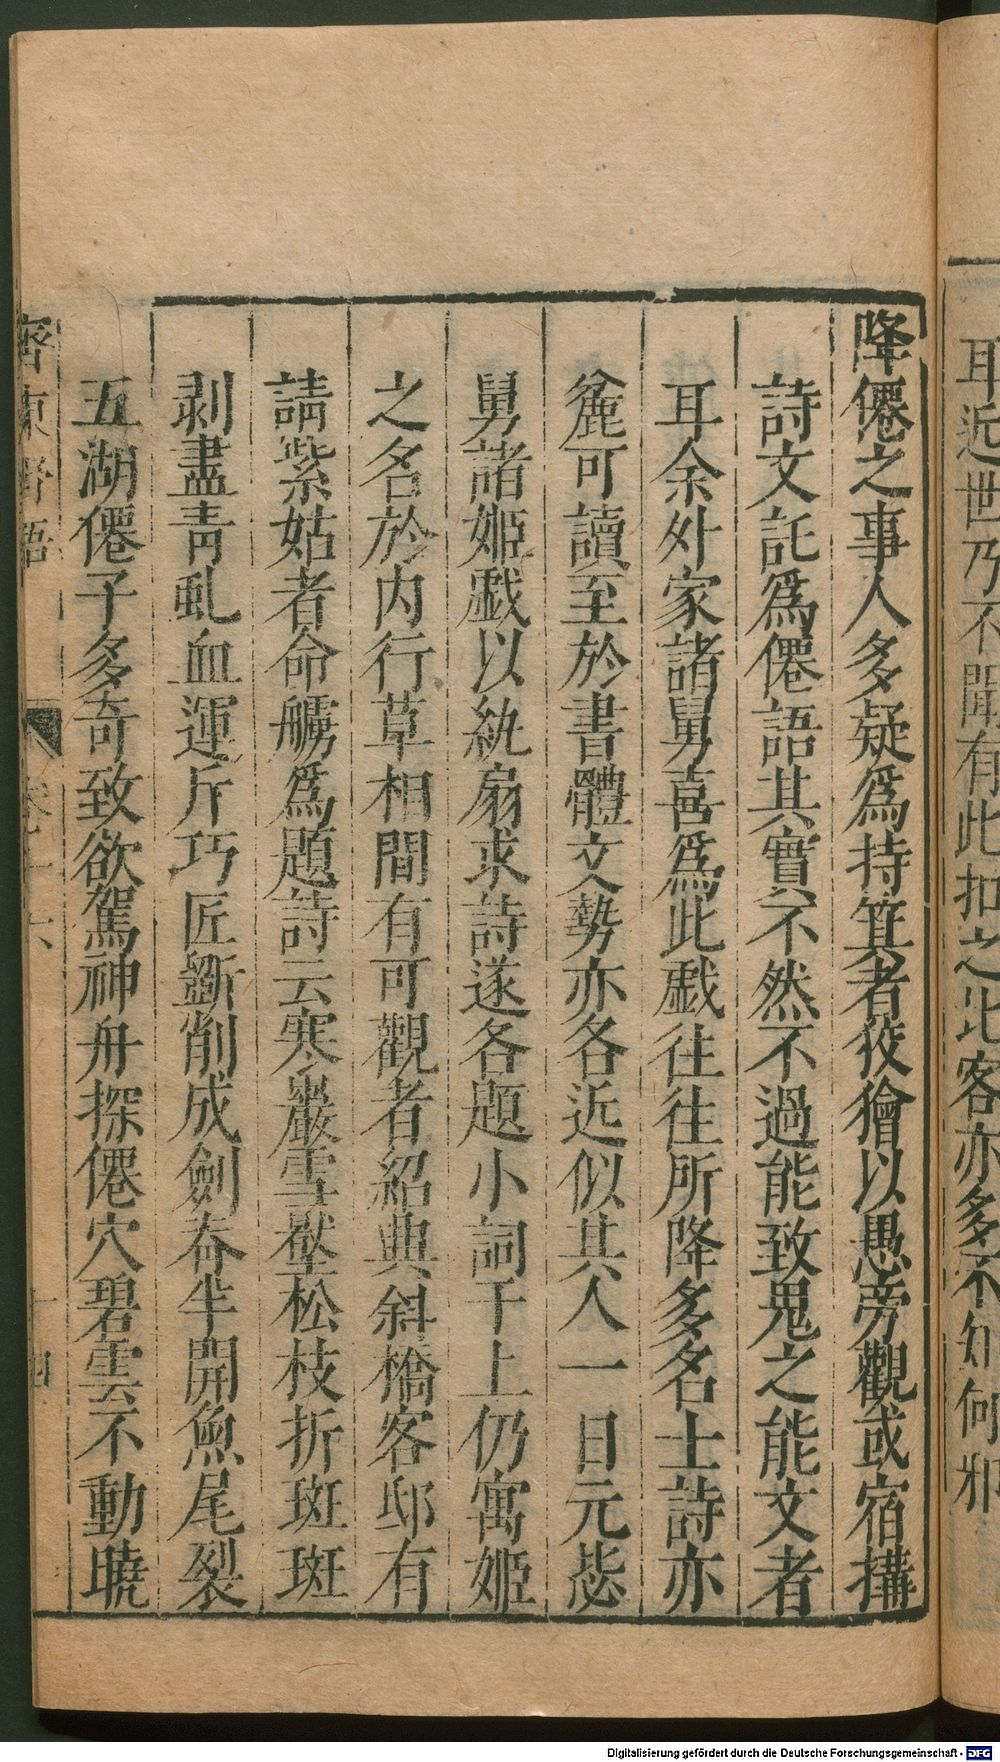 耳近世乃不聞有此扣之北客亦多不知何邪
降僊之事人多疑爲持箕者狡獪以愚旁觀或宿搆
詩文託爲僊語其實不然不過能致鬼之能文者
耳余外家諸舅喜爲此戲往往所降多名士詩亦
粗可讀至於書體文勢亦各近似其人一日元毖
舅諸姬戲以紈扇求詩遂各題小詞于上仍寓姬
之名於内行草相間有可觀者紹興斜橋客邸有
請紫姑者命觴爲題詩云寒巖雪壓松枝折斑斑
剥盡青虬血運斤巧匠斵削成劍脊半開魚尾裂
五湖僊子多奇致欲駕神舟探僊穴碧雲不動曉
齊東野語
卷十六
十四
Digitalisierung gefördert durch die Deutsche Forschungsgemeinschaft - DFG